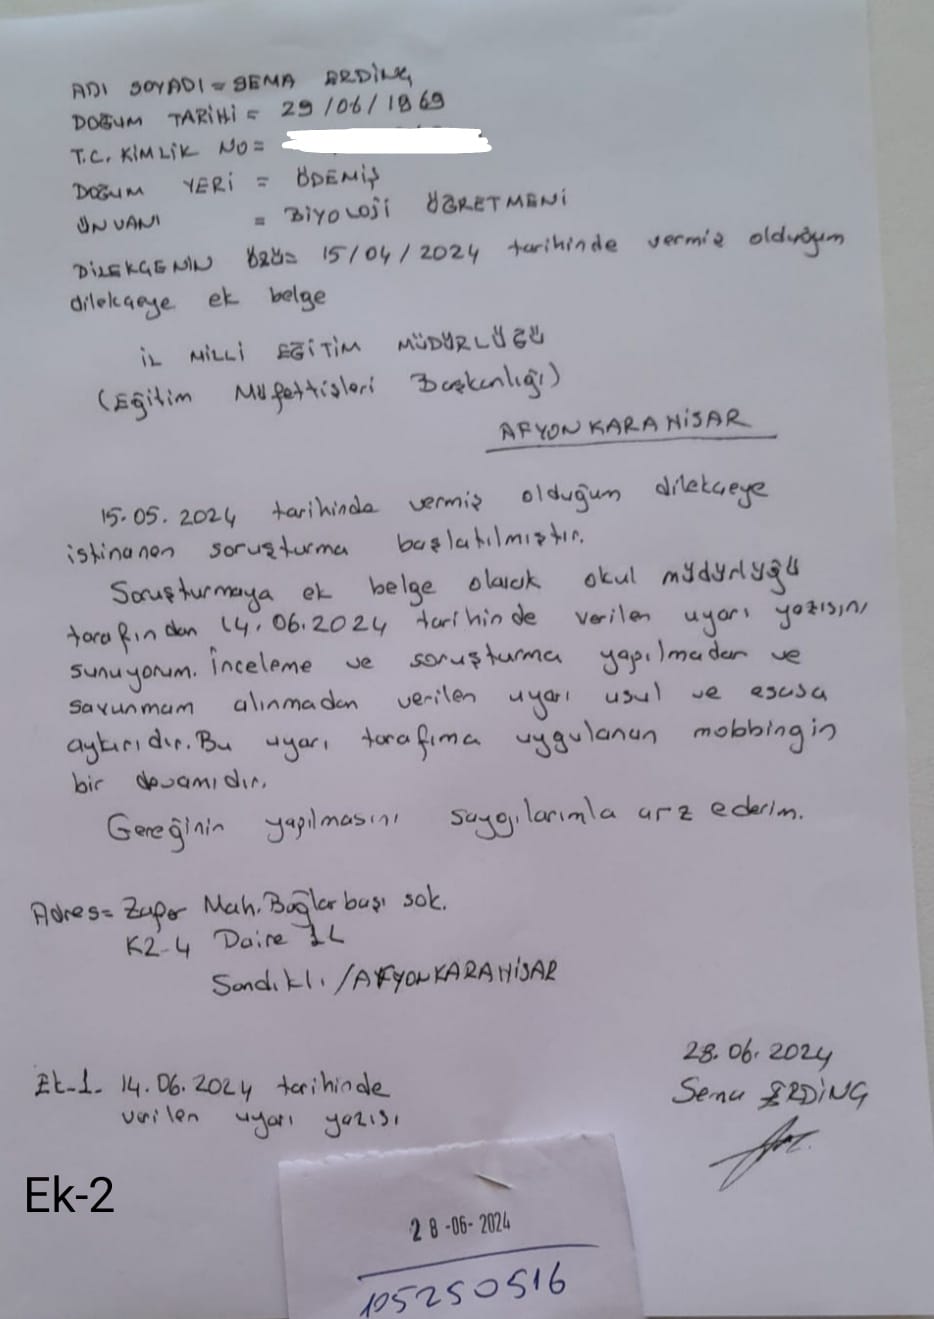 ADI SOYADI = SEMA ERDİNÇ
DOĞUM TARİHİ = 29/06/1969
T.C. KİMLİK NO=
DOĞUM YERİ = ÖDEMİŞ
ÜNVANI = BİYOLOJİ ÖĞRETMENİ
DİLEKÇENİN ÖZÜ= 15/04/2024 tarihinde vermiş olduğum
dilekçeye ek belge
İL MİLLİ EĞİTİM MÜDÜRLÜĞÜ
(Eğitim Müfettişleri Başkanlığı)
AFYONKARAHİSAR
15.05.2024 tarihinde vermiş olduğum dilekçeye
istinanen soruşturma başlatılmıştır.
Soruşturmaya ek belge olarak okul müdürlüğü
tarafından 14.06.2024 tarihinde verilen uyarı yazısını
sunuyorum. İnceleme ve soruşturma yapılmadan ve
savunmam alınmadan verilen uyarı usul ve esasa
aykırıdır. Bu uyarı tarafıma uygulanan mobbingin
bir devamıdır.
Gereğinin yapılmasını saygılarımla arz ederim.
Adres= Zafer Mah. Bağlarbaşı sok.
K2-4 Daire
Sandıklı /AFYONKARAHİSAR
28.06.2024
Sema ERDİNÇ
Ek-1- 14.06.2024 tarihinde
verilen uyarı yazısı
Ek-2
28-06-2024
105250516